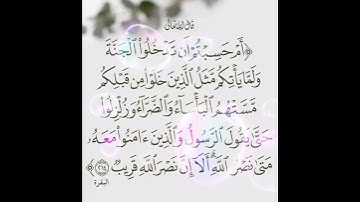 قال الله تعالى
﴿أَمْ حَسِبْتُمْ أَن تَدْخُلُوا۟ ٱلْجَنَّةَ
وَلَمَّا يَأْتِكُم مَّثَلُ ٱلَّذِينَ خَلَوْا۟ مِن قَبْلِكُم
مَّسَّتْهُمُ ٱلْبَأْسَآءُ وَٱلضَّرَّآءُ وَزُلْزِلُوا۟
حَتَّىٰ يَقُولَ ٱلرَّسُولُ وَٱلَّذِينَ ءَامَنُوا۟ مَعَهُۥ
مَتَىٰ نَصْرُ ٱللَّهِ ۗ أَلَآ إِنَّ نَصْرَ ٱللَّهِ قَرِيبٌ ٢١٤﴾
البقرة